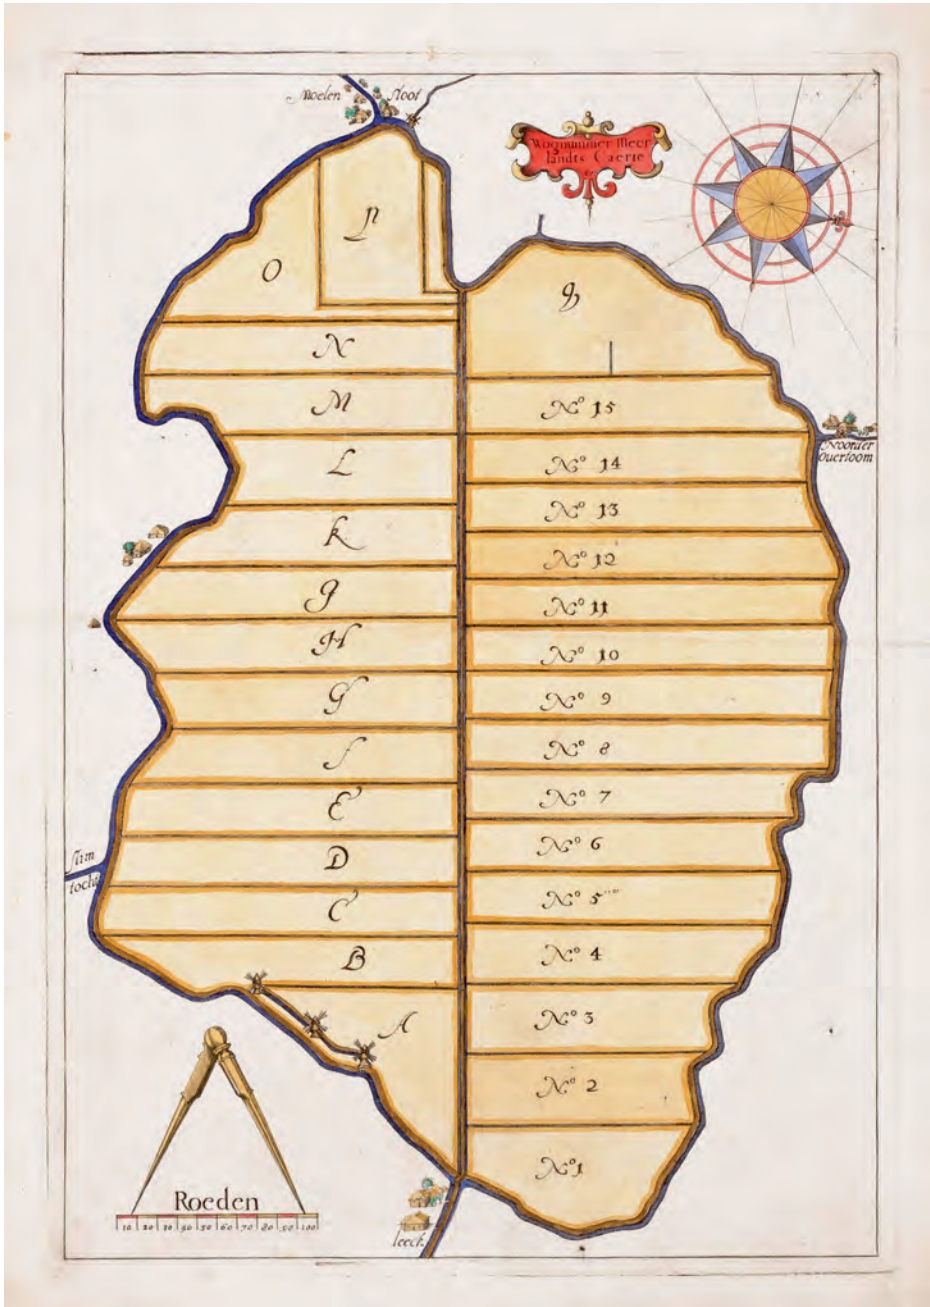 Moelen
Sloot
Wognummer Meer
landts Caerte
P
O
N
M
L
k
J
H
G
f
E
D
C
B
A
Q
No 15
No 14
No 13
No 12
No 11
No 10
No 9
No 8
No 7
No 6
No 5
No 4
No 3
No 2
No 1
Noorder
Overtoom
Slim
tocht
leeck
Roeden
10 20 30 40 50 60 70 80 90 100